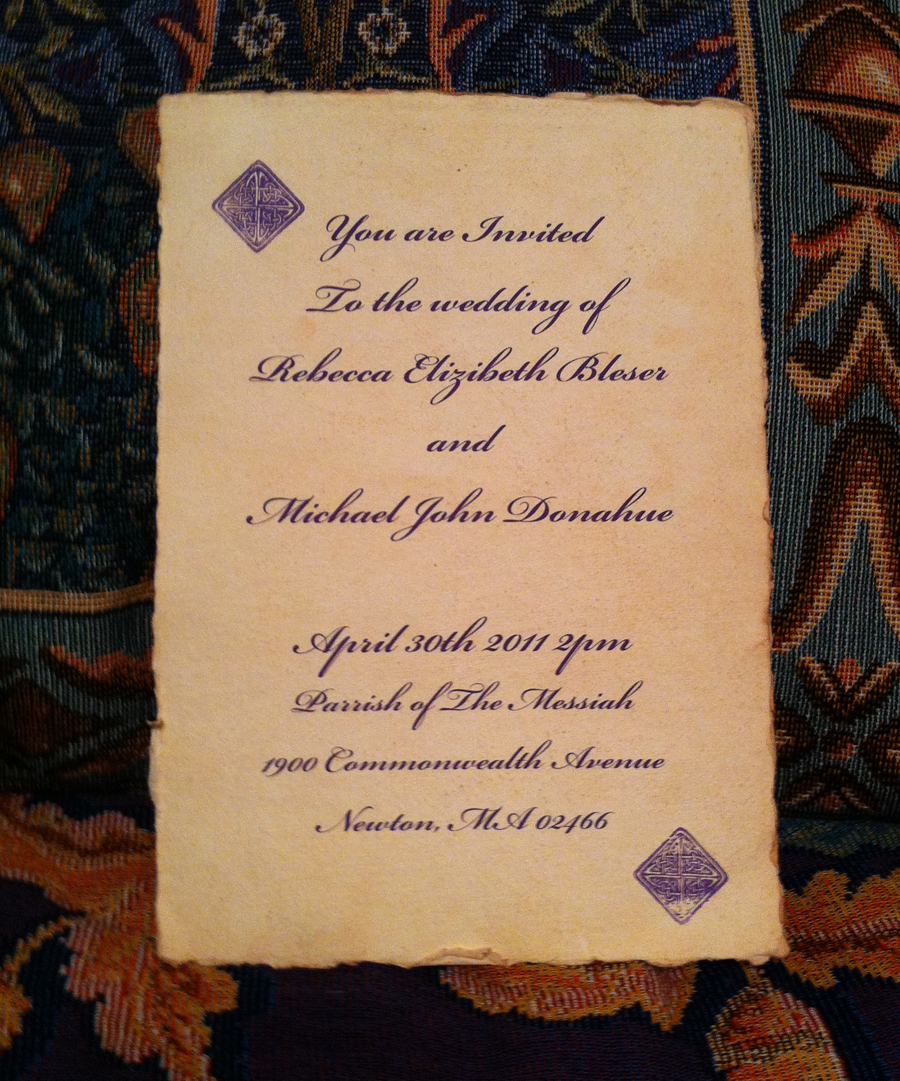 You are Invited
To the wedding of
Rebecca Elizibeth Bleser
and
Michael John Donahue
April 30th 2011 2pm
Parrish of The Messiah
1900 Commonwealth Avenue
Newton, MA 02466